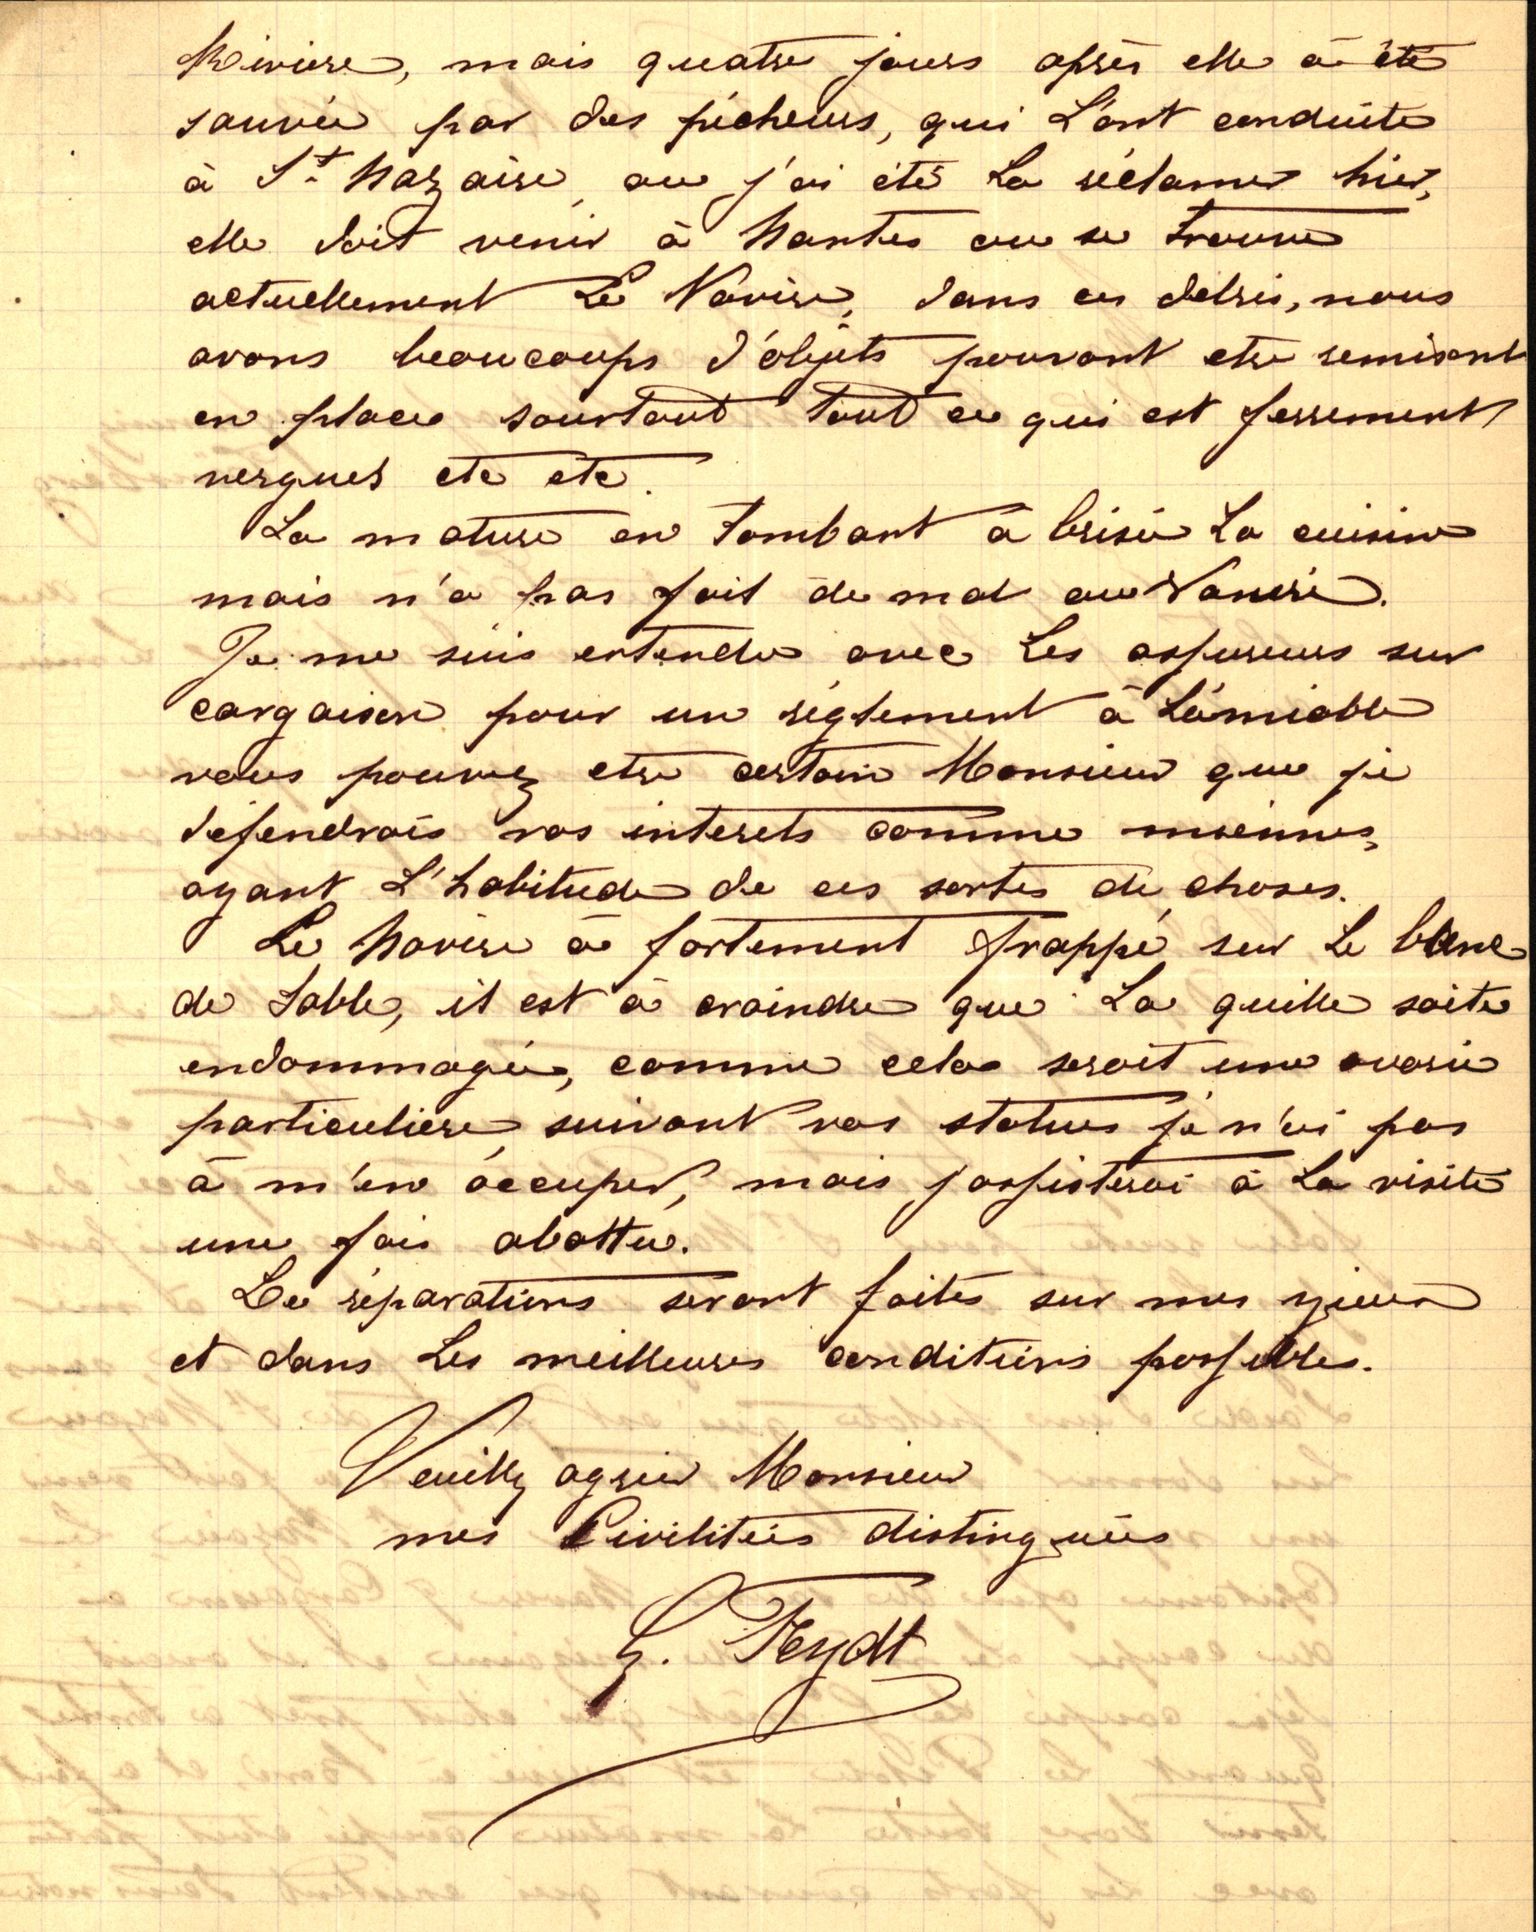 Riviere, mais quatre jours après elle à été
sauvée par des pécheurs, qui L'ont conduite
à St Nazaire, ou j'ai été La réclamer hier,
elle doit venir à Nantes ou se trouve
actuellement Le Navire, dans ces debris, nous
avons beaucoups d'objets pouvant etre remisent
en place sourtout tout ce qui est ferrement
vergues etc etc.
La mature en tombant à brisée La cuisine
mais n'a pas fait de mal au Navire.
Je me suis entendu avec Les assureurs sur
cargaison pour un réglement à L'amiable
vous pouvez etre certain Monsieur que je
défendrais vos interets comme miennes,
ayant L'habitude de ces sortes de choses.
Le Navire à fortement frappé sur Le banc
de Sable, il est à craindre que La quille soite
endommagée, comme cela serait une avarie
particuliere suivant vos status je n'ai pas
à m'en óccuper, mais j'assisterai à La visite
une fois abattu.
Les réparations seront faites sur mes yieux
et dans Les meilleures conditions possibles.
Veuillez agreer Monsieur
mes Civilitées distinguées
G. Feydt